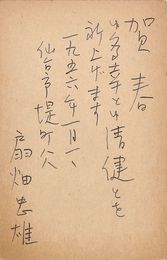 賀春
ゆる幸と清健とを
祈上げます
一九五六年一月一日
仙台市堤町八
扇畑忠雄